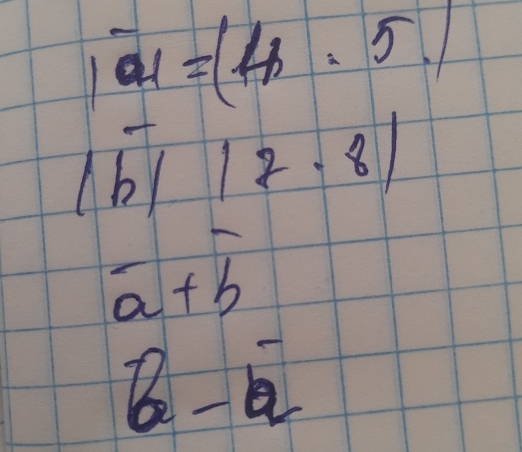 |a̅| = (4 . 5.)
|b̅| |7 . 8|
a̅ + b̅
b̅ - a̅